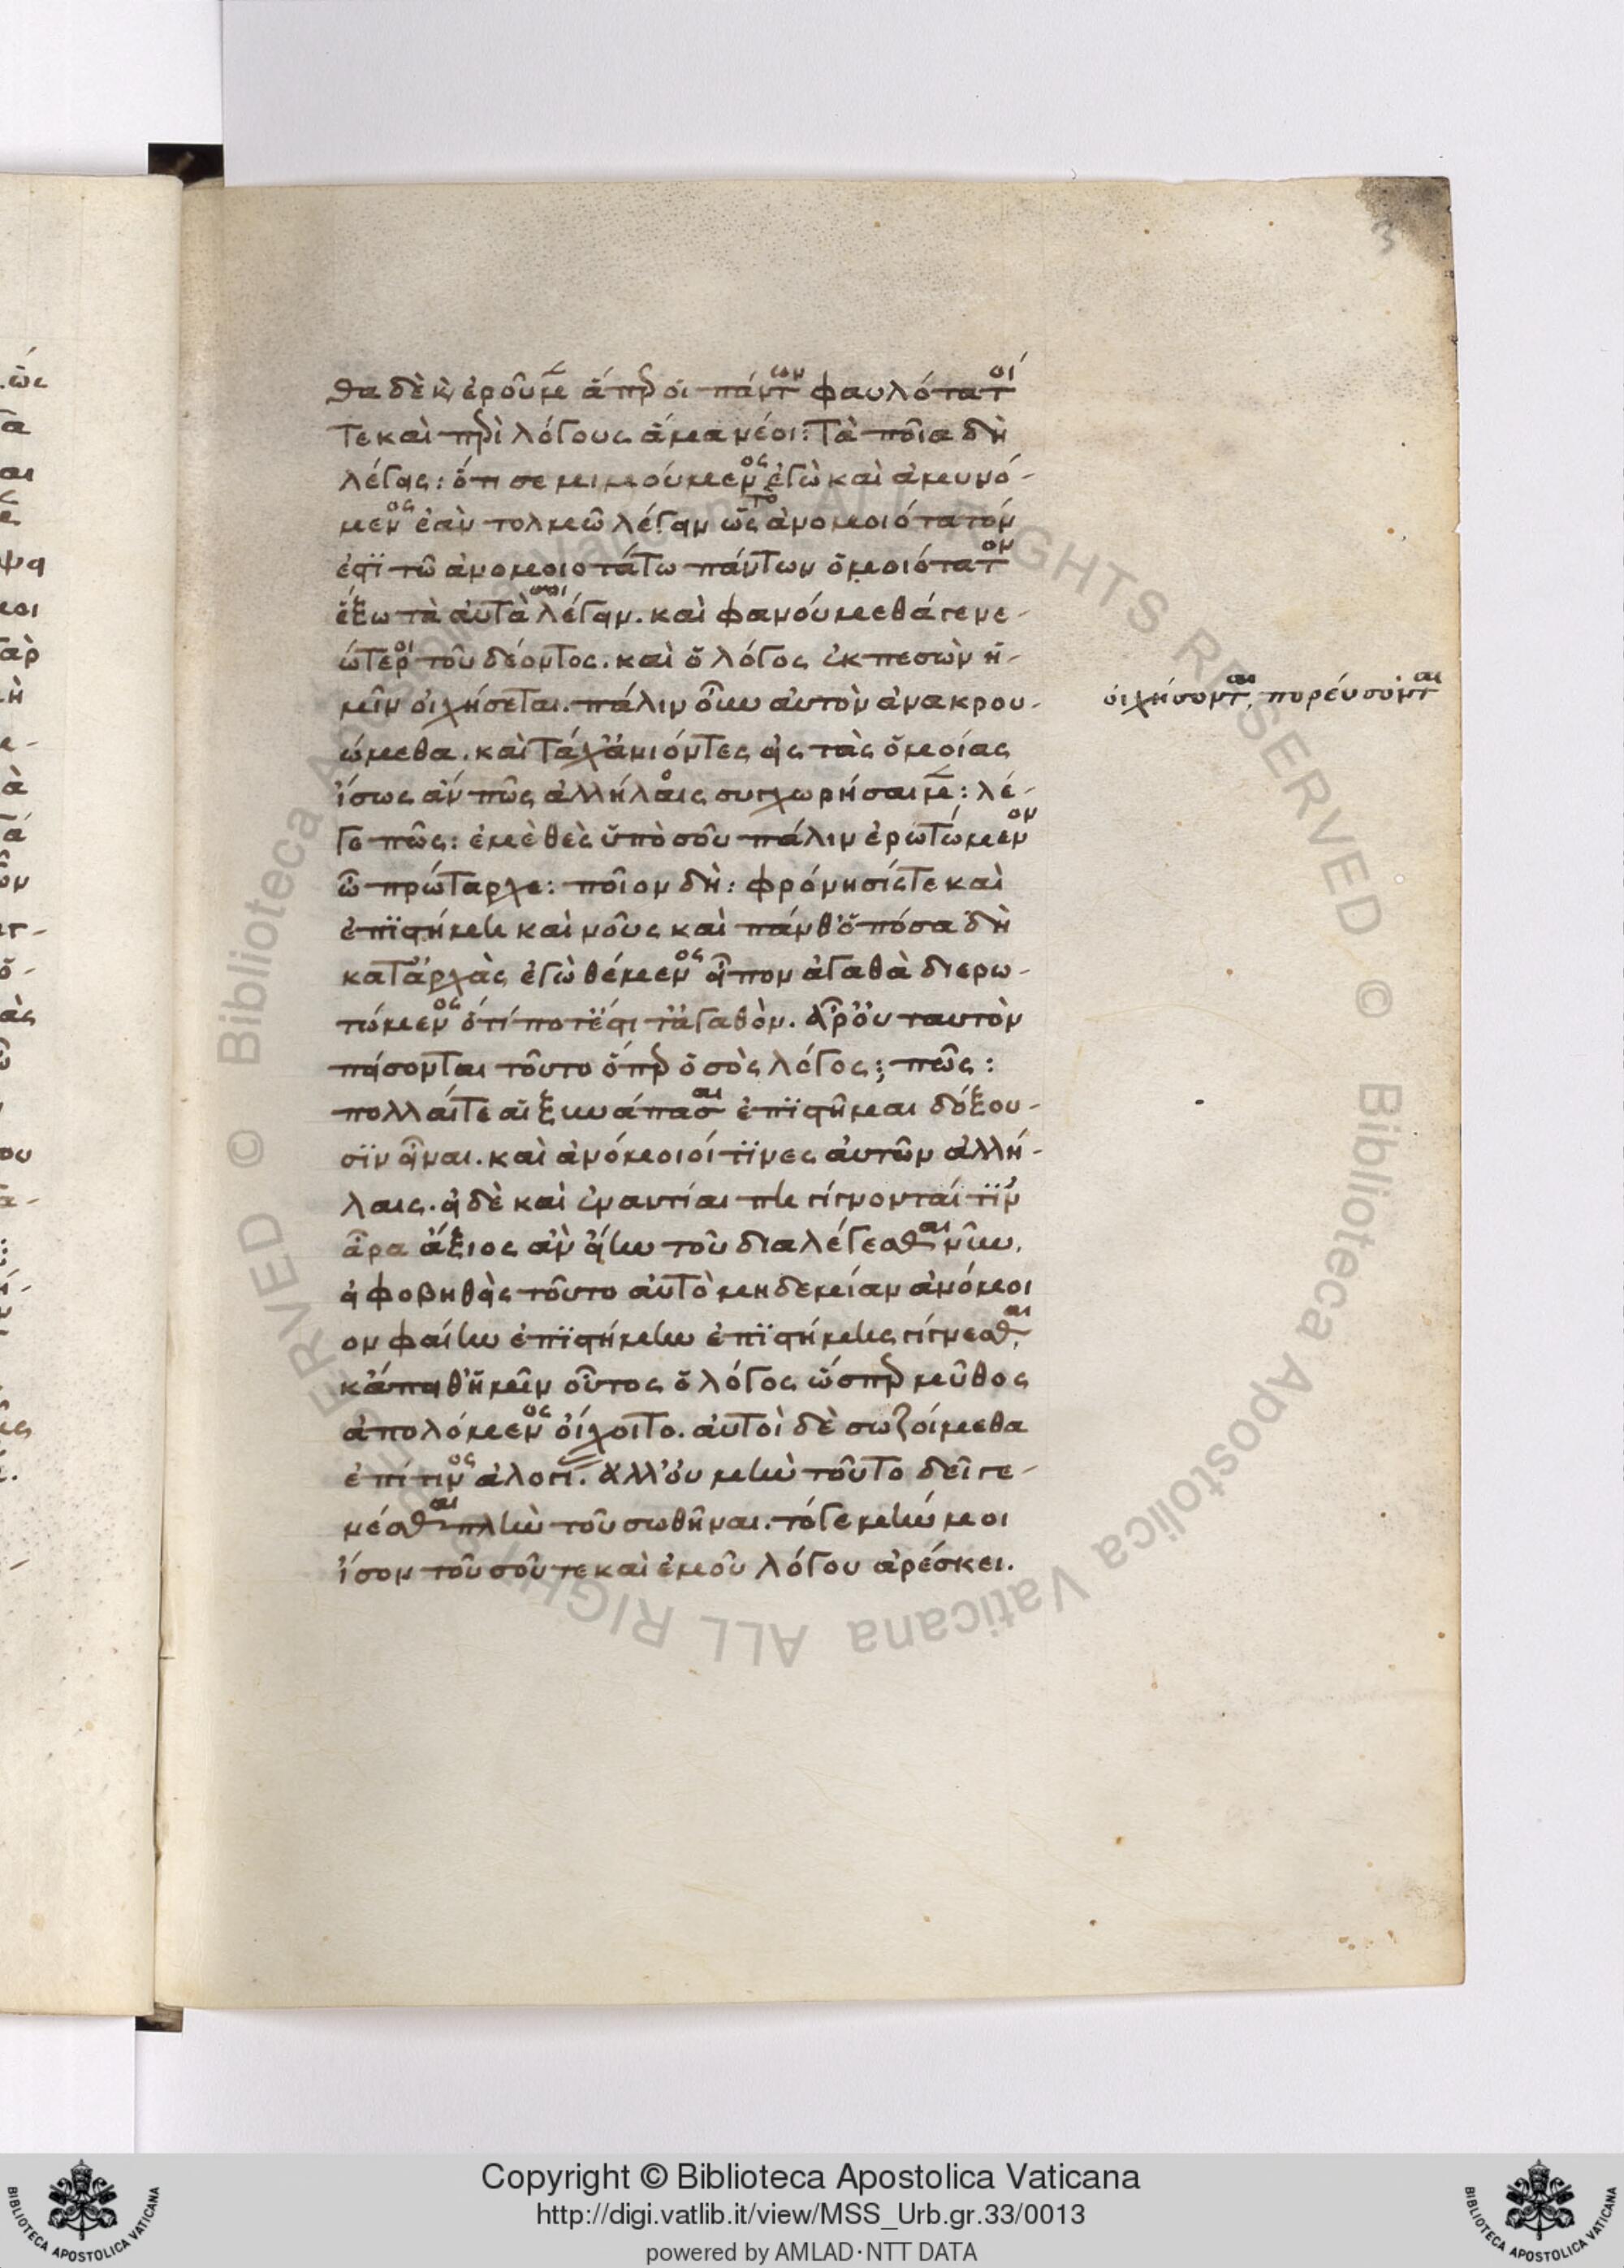 3
θα δὲ κ̀ ἐροῦμεν ἅπερ οἱ πάντων φαυλότατοί
τε καὶ περὶ λόγους ἅμα νέοι: Τὰ ποῖα δὴ
λέγεις: ὅτι σε μιμούμενος ἐγὼ καὶ ἀμυνό-
μενος ἐὰν τολμῶ λέγειν ὡς τὸ ἀνομοιότατόν
ἐστι τῶ ἀνομοιοτάτω πάντων ὁμοιότατον
ἕξω τὰ αὐτὰ σοὶ λέγειν. καὶ φανούμεθά γε νε-
ώτεροι τοῦ δέοντος. καὶ ὁ λόγος ἐκπεσὼν ἡ-
μῖν οἰχήσεται. πάλιν οὖν αὐτὸν ἀνακρου-
ώμεθα. καὶ τάχ' ἀνιόντες εἰς τὰς ὁμοίας
ἴσως ἄν πως ἀλλήλοις συγχωρήσαιμεν: λέ-
γε πῶς: ἐμὲ θὲς ὑπὸ σοῦ πάλιν ἐρωτώμενον
ὦ πρώταρχε: ποῖον δή: φρόνησίς τε καὶ
ἐπιστήμη καὶ νοῦς καὶ πάνθ' ὁπόσα δὴ
κατ' ἀρχὰς ἐγὼ θέμενος εἶπον ἀγαθὰ διερω-
τώμενος ὅτί ποτ' ἐστὶ τἀγαθόν. ἆρ' οὐ ταυτὸν
πείσονται τοῦτο ὅπερ ὁ σὸς λόγος; πῶς:
πολλαί τε αἱ ξυνάπασαι ἐπιστῆμαι δόξου-
σιν εἶναι. καὶ ἀνόμοιοί τινες αὐτῶν ἀλλή-
λαις. εἰ δὲ καὶ ἐναντίαι πη γίγνονταί τιν
ἆρα ἄξιος ἂν εἴην τοῦ διαλέγεσθαι νῦν,
εἰ φοβηθεὶς τοῦτο αὐτὸ μηδεμίαν ἀνόμοι
ον φαίην ἐπιστήμην ἐπιστήμης γίγνεσθαι,
κἄπειθ' ἡμῖν οὗτος ὁ λόγος ὥσπερ μῦθος
ἀπολόμενος οἴχοιτο. αὐτοὶ δὲ σωζοίμεθα
ἐπί τινος ἀλογί. ἀλλ' οὐ μὴν τοῦτο δεῖ γε-
νέσθαι πλὴν τοῦ σωθῆναι. τό γε μήν μοι
ἴσον τοῦ σοῦ τε καὶ ἐμοῦ λόγου ἀρέσκει.
οἰχήσονται, πορεύσονται
© Biblioteca Apostolica Vaticana ALL RIGHTS RESERVED
© Biblioteca Apostolica Vaticana ALL RIGHTS RESERVED
Copyright © Biblioteca Apostolica Vaticana
http://digi.vatlib.it/view/MSS_Urb.gr.33/0013
powered by AMLAD·NTT DATA
BIBLIOTECA APOSTOLICA VATICANA
BIBLIOTECA APOSTOLICA VATICANA